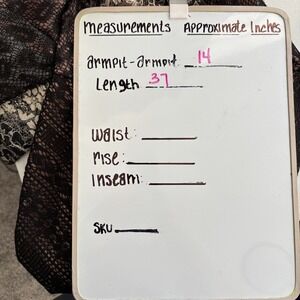 measurements Approximate Inches
armpit-armpit 14
Length 37
waist:
rise:
Inseam:
SKU